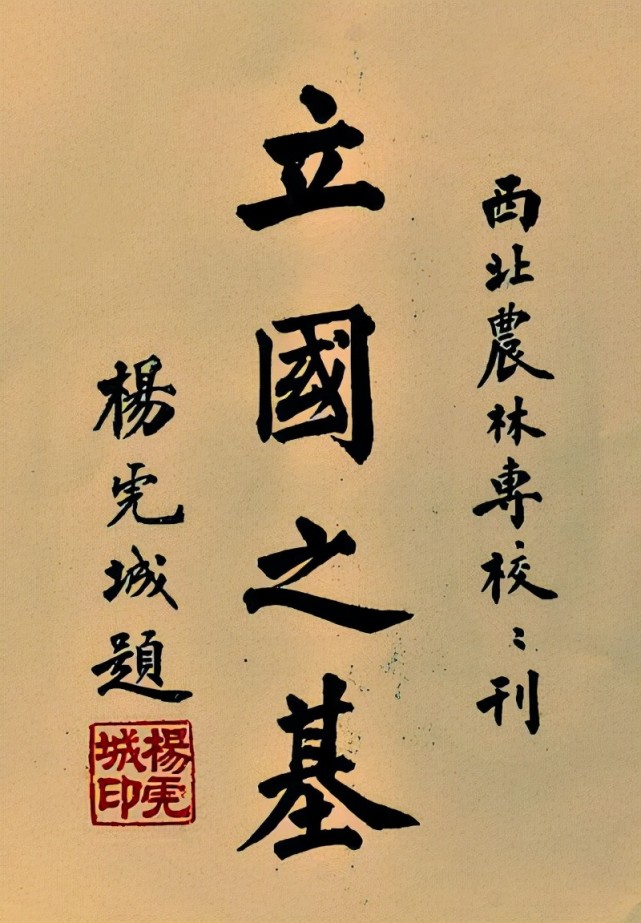 西北農林専校〻刊
立國之基
楊虎城題
楊虎城印